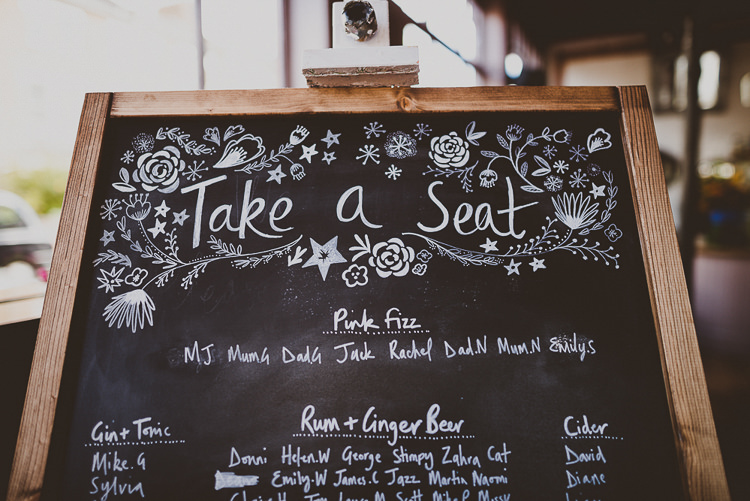 Take a Seat
Pink Fizz
MJ MumG DadG Jack Rachel Dad.N Mum.N Emily.S
Gin + Tonic
Mike.G
Sylvia
Rum + Ginger Beer
Donni Helen.W George Stimpy Zahra Cat
Emily.W James.C Jazz Martin Naomi
Cider
David
Diane